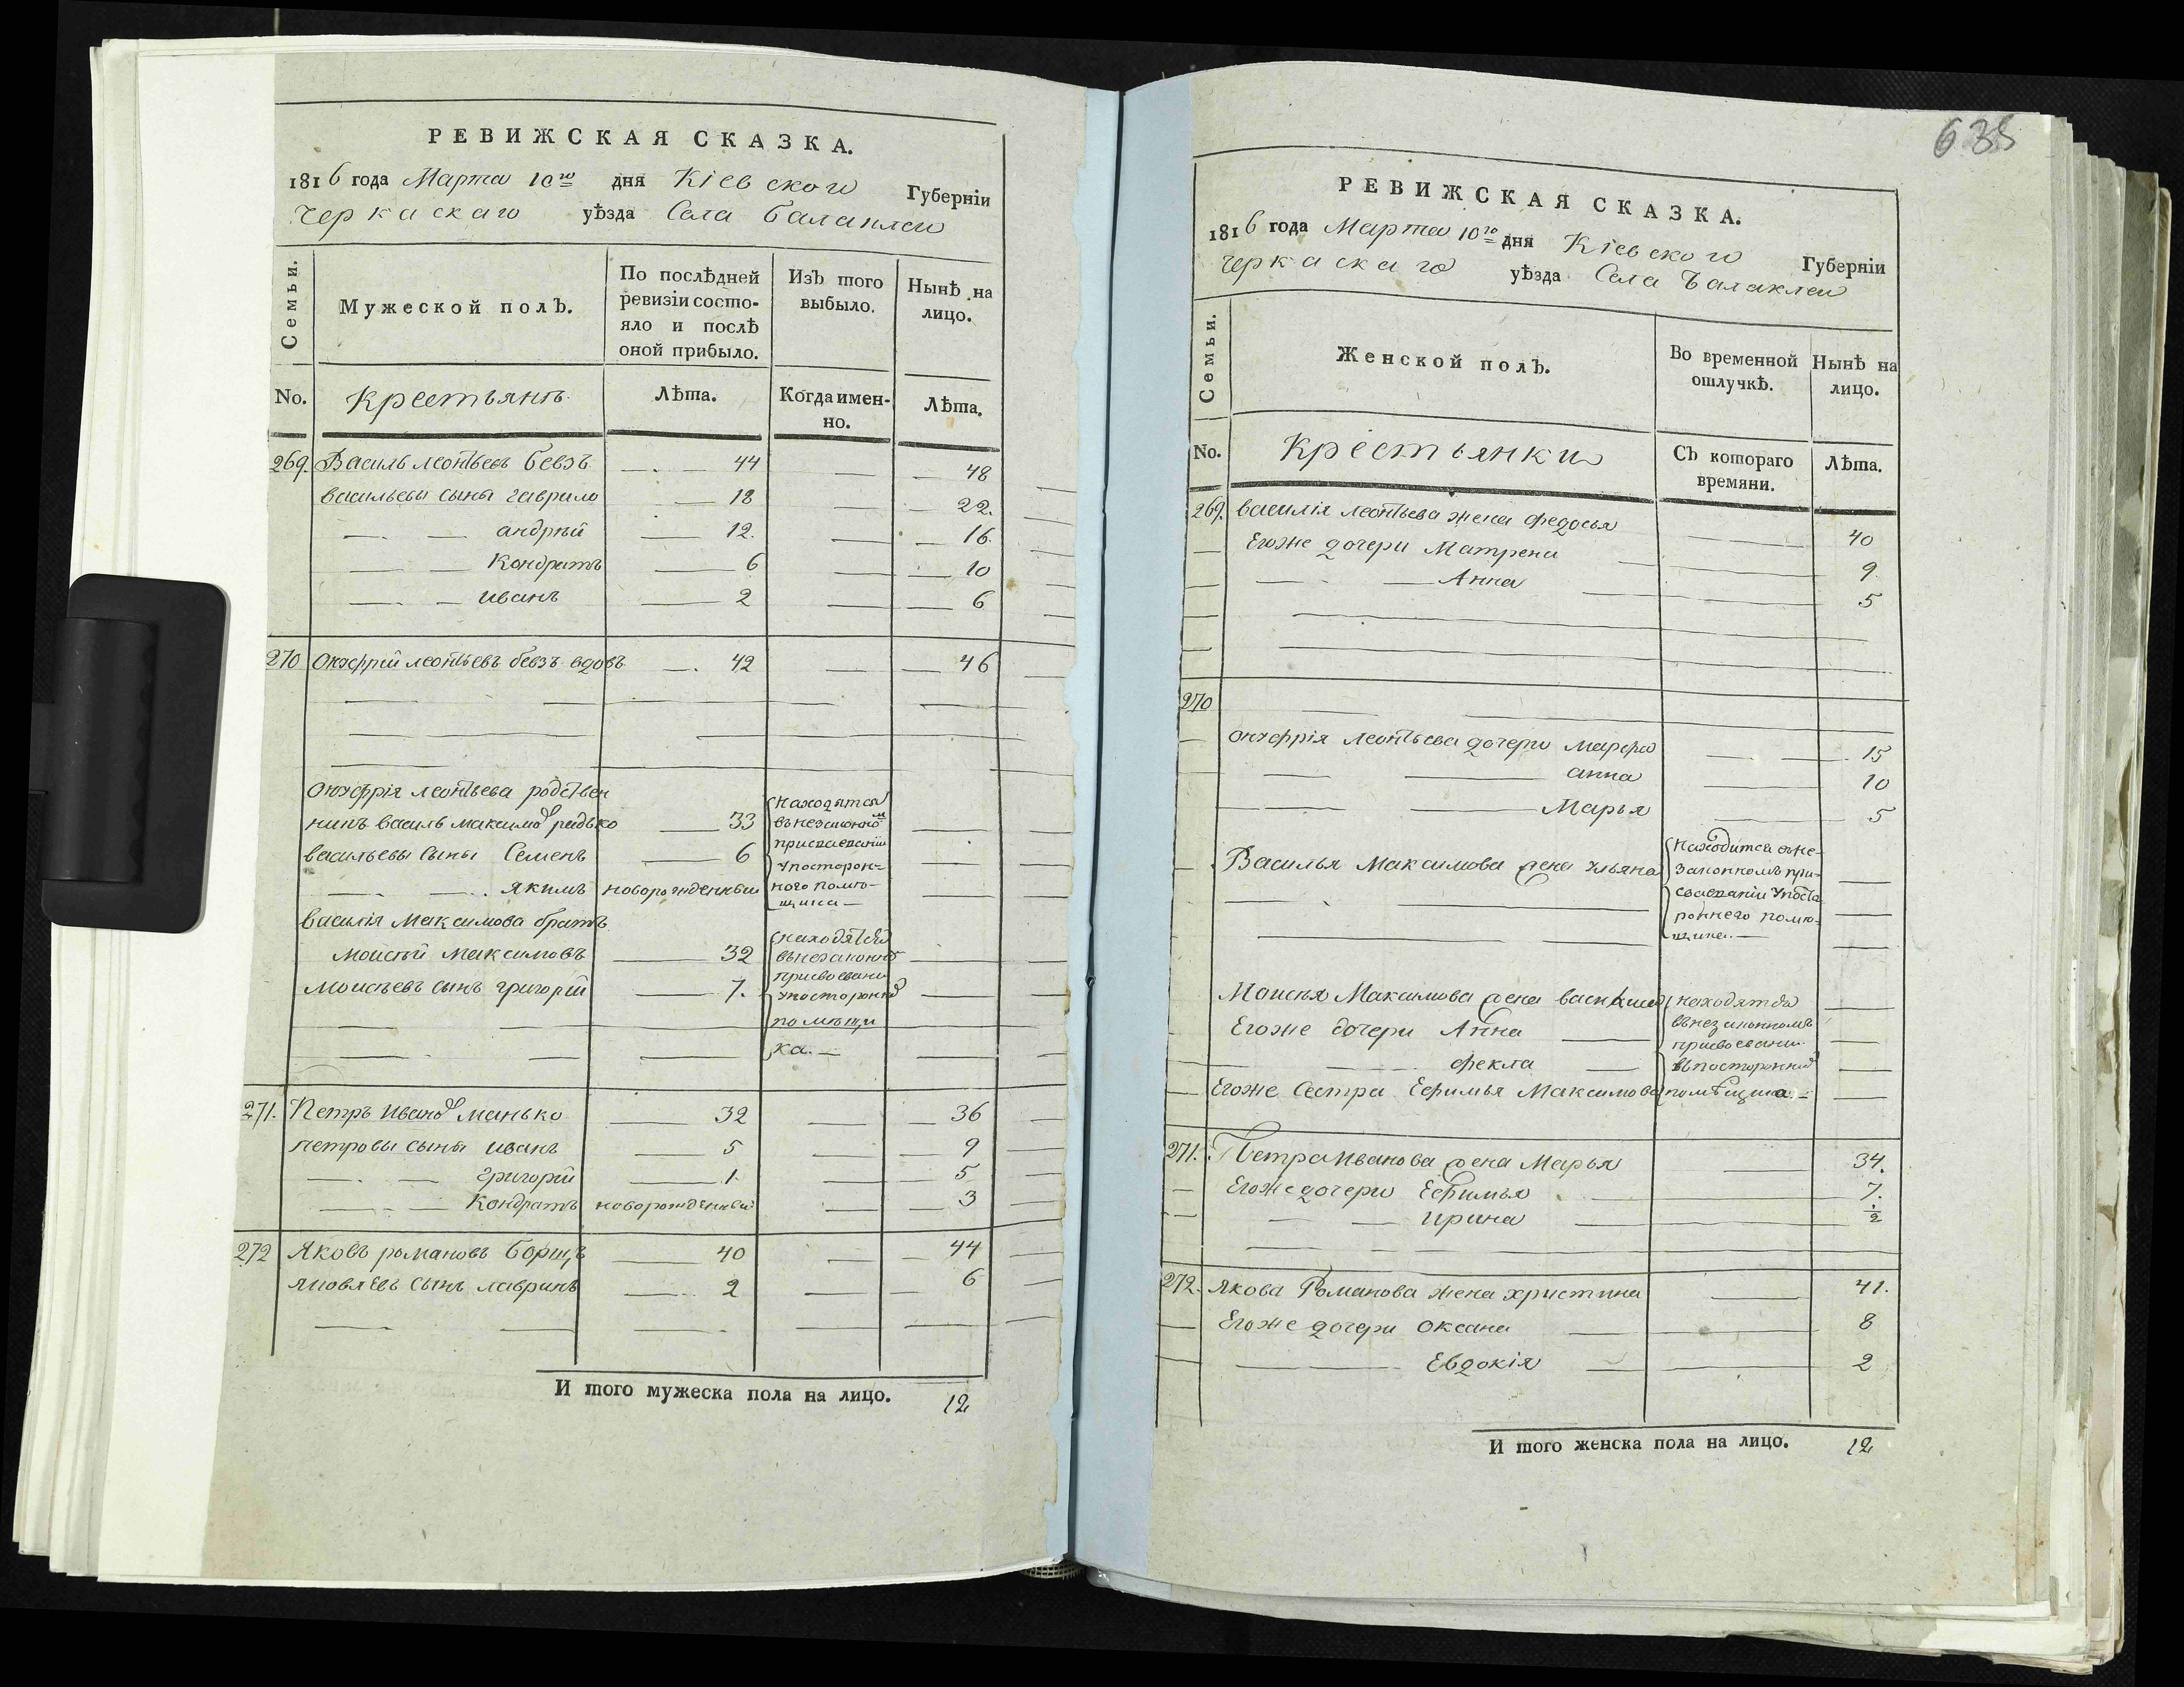 РЕВИЖСКАЯ СКАЗКА.
1816 года Марта 10го дня Кіевского Губерніи
Черкаскаго уѣзда Села Балаклеи
Семьи. Мужеской полъ. По послѣдней ревизіи состояло и послѣ оной прибыло. Изъ того выбыло. Нынѣ на лицо.
No. Крестьянъ Лѣта. Когда имен-но. Лѣта.
269. Василь леонтьевъ бевзъ 44 48
васильевы сыны гаврило 18 22.
андрѣй 12. 16.
Кондратъ 6 10
иванъ 2 6
270 Онуфрій леонтьевъ бевзъ вдовъ 42 46
Онуфрія леонтьева родствен
нинъ василь максимов редько 33
васильевы сыны Семенъ 6
якимъ новорожденный
находятся
въ незаконном
присваеваніи
у посторон-
ного поме-
щика
василія Максимова братъ
моисей максимовъ 32
Моисѣевъ сынъ григорій 7.
находятся
въ незаконно
присвоевани
у посторонно
помѣщи
ка.
271. Петръ иванов манько 32 36
петровы сыны иванъ 5 9
григорій 1. 5
Кондратъ новорожденный 3
272 Яковъ романовъ борщъ 40 44
яковлевъ сынъ лавринъ 2 6
И того мужеска пола на лицо. 12
635
РЕВИЖСКАЯ СКАЗКА.
1816 года Марта 10го дня Кіевского Губерніи
черкаскаго уѣзда Села Балаклеи
Семьи. Женской полъ. Во временной отлучкѣ. Нынѣ на лицо.
No. Крестьянки Съ котораго времяни. Лѣта.
269. василія леонтьева жена федосья 40
Егоже дочери Матрена 9.
Анна 5
270
онуфрія леонтьева дочери марфа 15
анна 10
Марья 5
Василья Максимова жена ульяна
Находится въ не-
законномъ при-
сваеваніи у посто
роннего поме-
щика.
Моисея Максимова жена
Егоже дочери Анна
фекла
Егоже Сестра Ефимья Максимова
находятся
въ незаконномъ
присвоевани
въ посторонно
помѣщика
271. Петра Иванова жена Марья 34.
Егоже дочери Ефимья 7.
ирина 1/2
272. Якова Романова жена христина 41.
Егоже дочери оксана 8
Евдокія 2
И того женска пола на лицо. 12